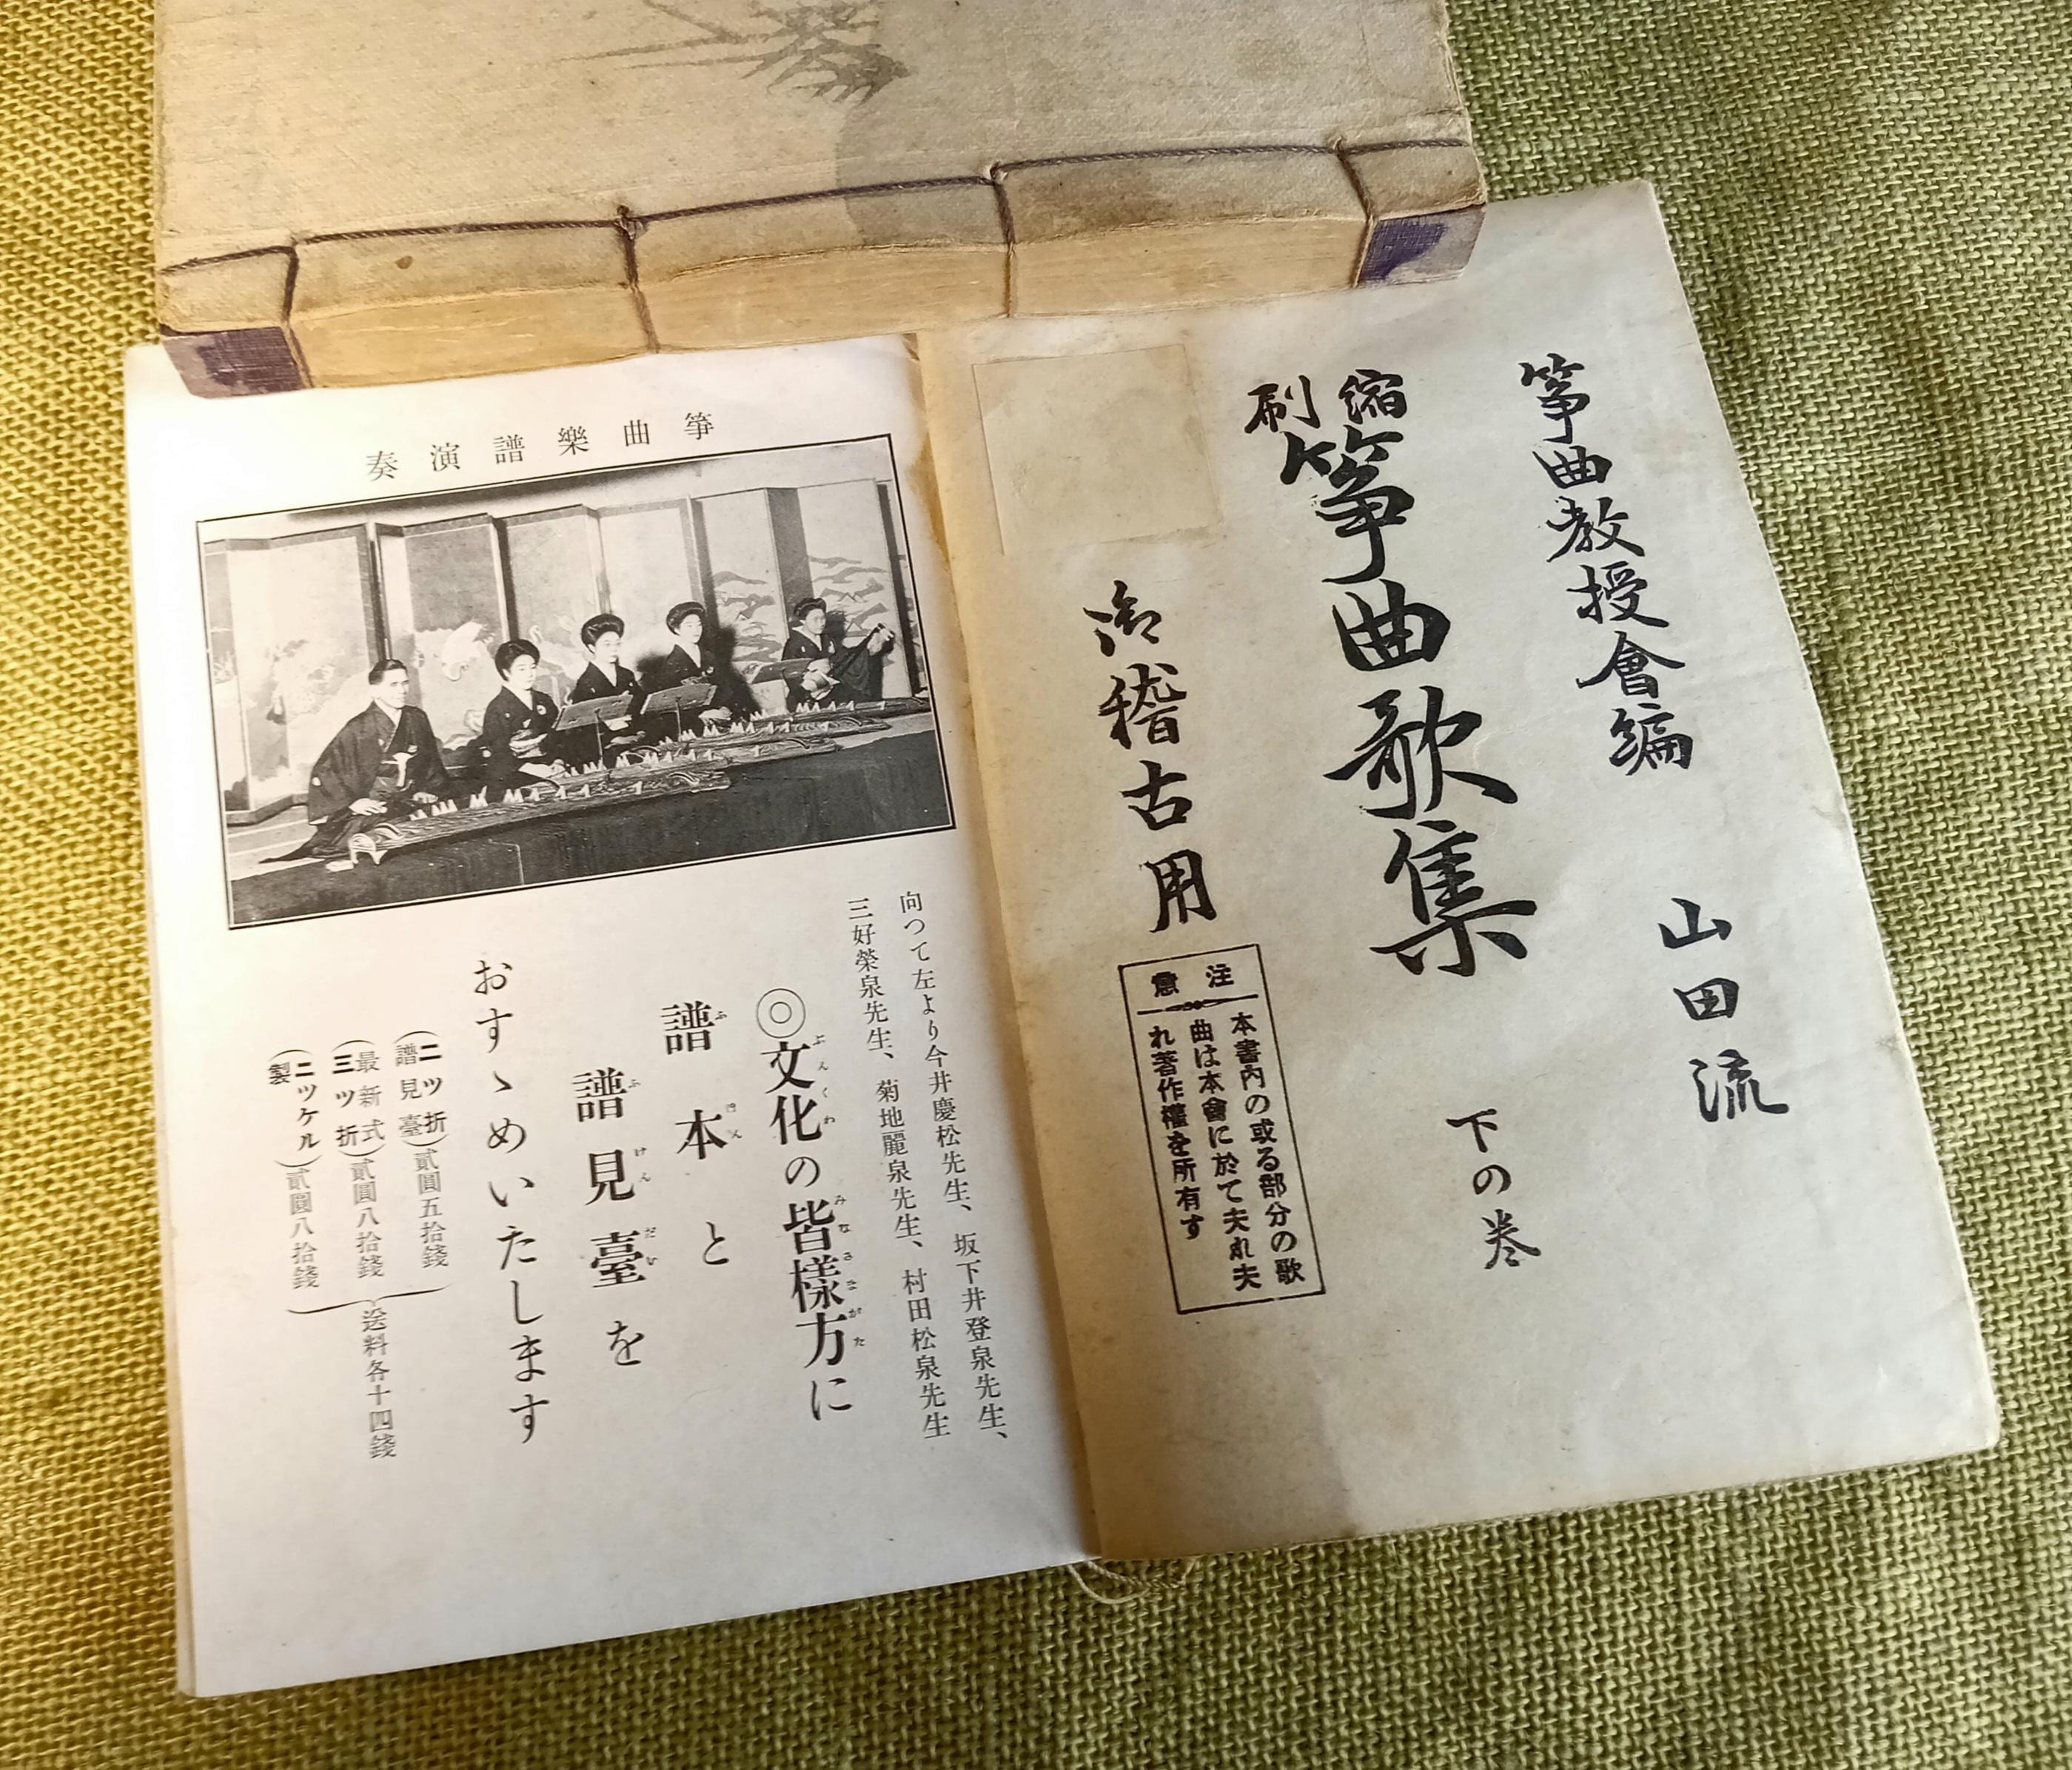 箏曲教授會編
山田流
縮刷
箏曲歌集
下の巻
御稽古用
注意
本書内の或る部分の歌
曲は本會に於て夫れ夫
れ著作權を所有す
箏曲樂譜演奏
向つて左より今井慶松先生、坂下井登泉先生、
三好榮泉先生、菊地麗泉先生、村田松泉先生
◎文化の皆樣方に
ぶんくわ みなさまがた
譜本と
ふほん
譜見臺を
ふけんだい
おすゝめいたします
(二ツ折譜見臺)貳圓五拾錢
(最新式三ツ折)貳圓八拾錢
(ニツケル製)貳圓八拾錢
送料各十四錢